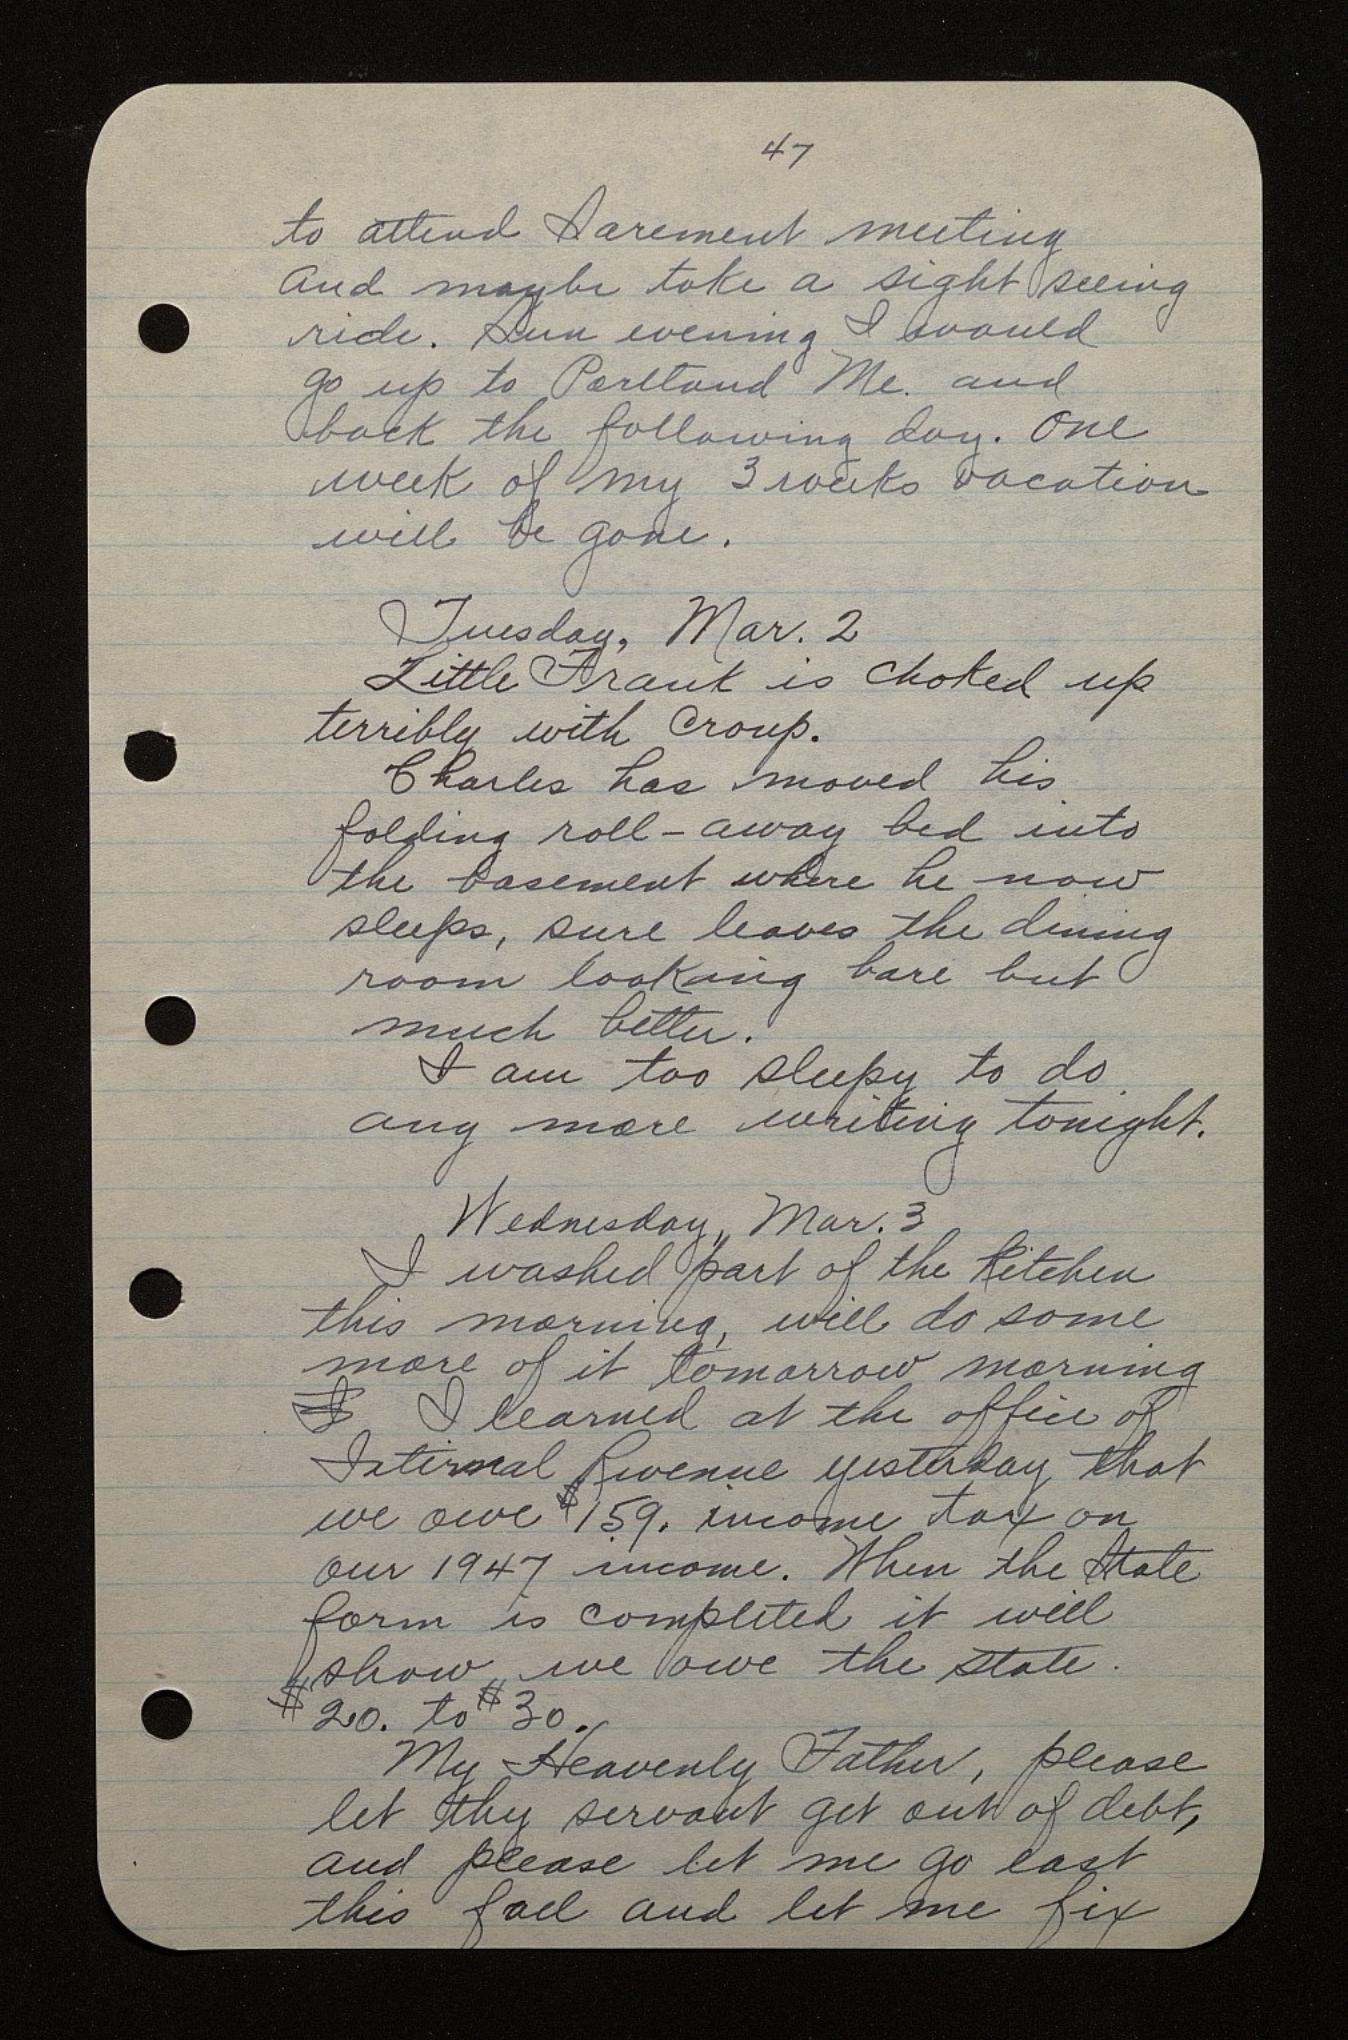 47
to attend Sarement meeting
and maybe take a sight seeing
ride. Sun evening I would
go up to Portland Me. and
back the following day. One
week of my 3 weeks vacation
will be gone.
Tuesday, Mar. 2
Little Frank is choked up
terribly with croup.
Charles has moved his
folding roll-away bed into
the basement where he now
sleeps, sure leaves the dining
room looking bare but
much better.
I am too sleepy to do
any more writing tonight.
Wednesday, Mar. 3
I washed part of the kitchen
this morning, will do some
more of it tomorrow morning
I I learned at the office of
Internal Revenue yesterday that
we owe $159. income tax on
our 1947 income. When the State
form is completed it will
show we owe the state.
$20. to $30.
My Heavenly Father, please
let thy servant get out of debt,
and please let me go east
this fall and let me fix